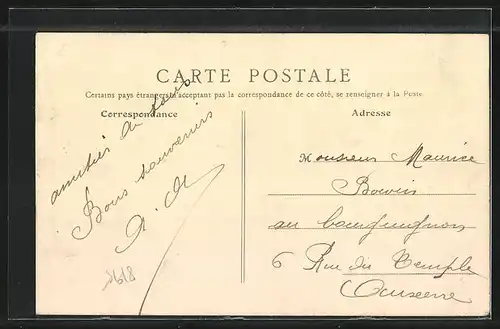 CARTE POSTALE
Certains pays étrangers n'acceptant pas la correspondance de ce côté, se renseigner à la Poste.
Correspondance
Adresse
amitiés de tous
Bons souvenirs
Monsieur Maurice
au bourguignon
6 Rue du Temple
Auxerre